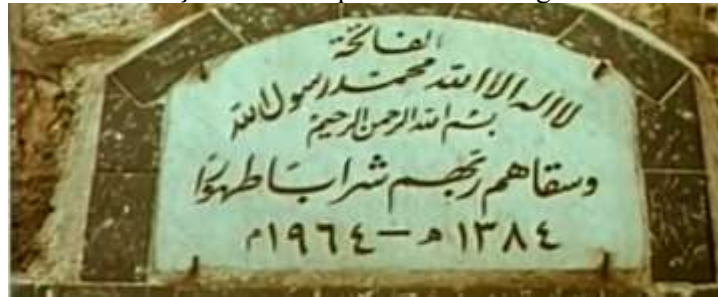 الفاتحة
لا اله الا الله محمد رسول الله
بسم الله الرحمن الرحيم
وسقاهم ربهم شرابا طهورا
١٣٨٤ هـ - ١٩٦٤ م